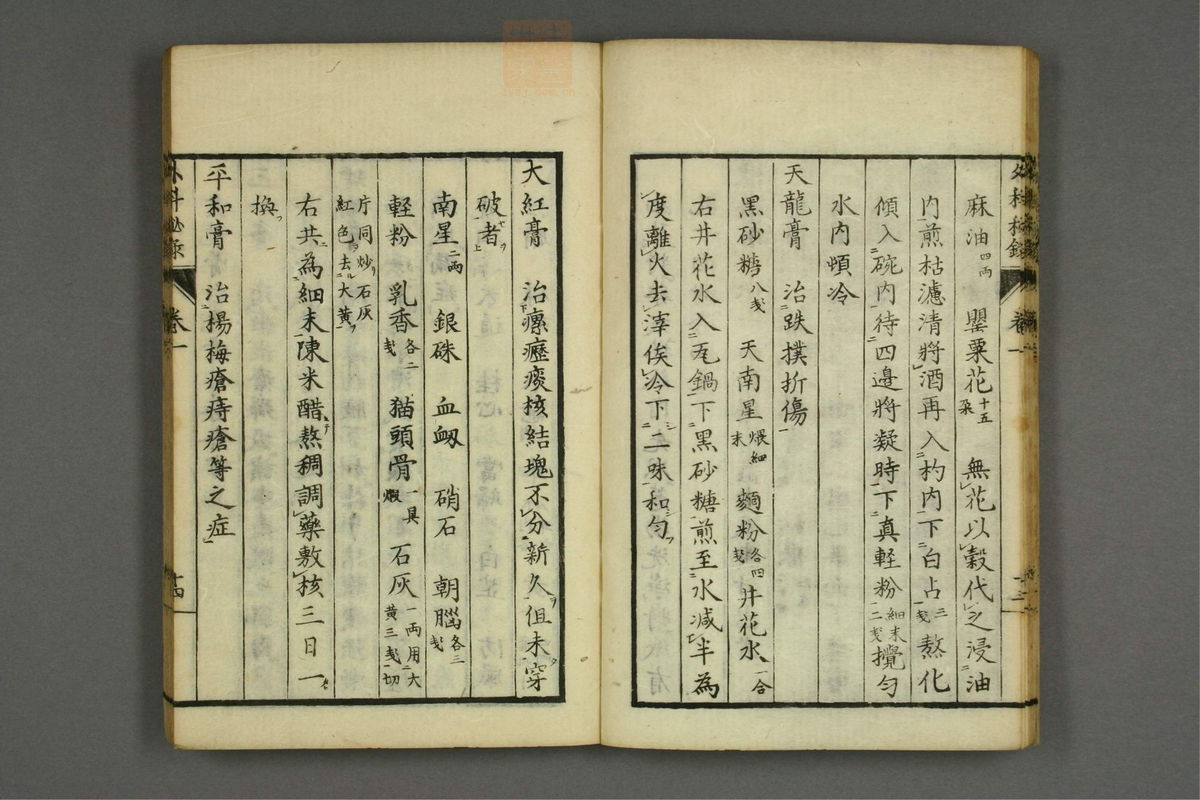 麻油四兩 罌粟花十五朶 無花以穀代之浸油
内煎枯濾清將酒再入杓内下白占三戔熬化
傾入碗内待四邊將凝時下真軽粉細末二戔攪匀
水内頓冷
天龍膏 治跌撲折傷
黒砂糖八戔 天南星煨細末 麵粉各四戔 井花水一合
右井花水入瓦鍋下黒砂糖煎至水减半為
度離火去滓俟冷下二味和匀
大紅膏 治瘰癧痰核結塊不分新久但未穿
破者
南星二兩 銀硃 血竭 硝石 朝腦各三戔
軽粉 乳香各二戔 猫頭骨一具煅 石灰一兩用大黄三戔切
片同炒石灰紅色去大黄
右共為細末陳米醋熬稠調藥敷核三日一
換
平和膏 治楊梅瘡痔瘡等之症
卷一
十四
卷一